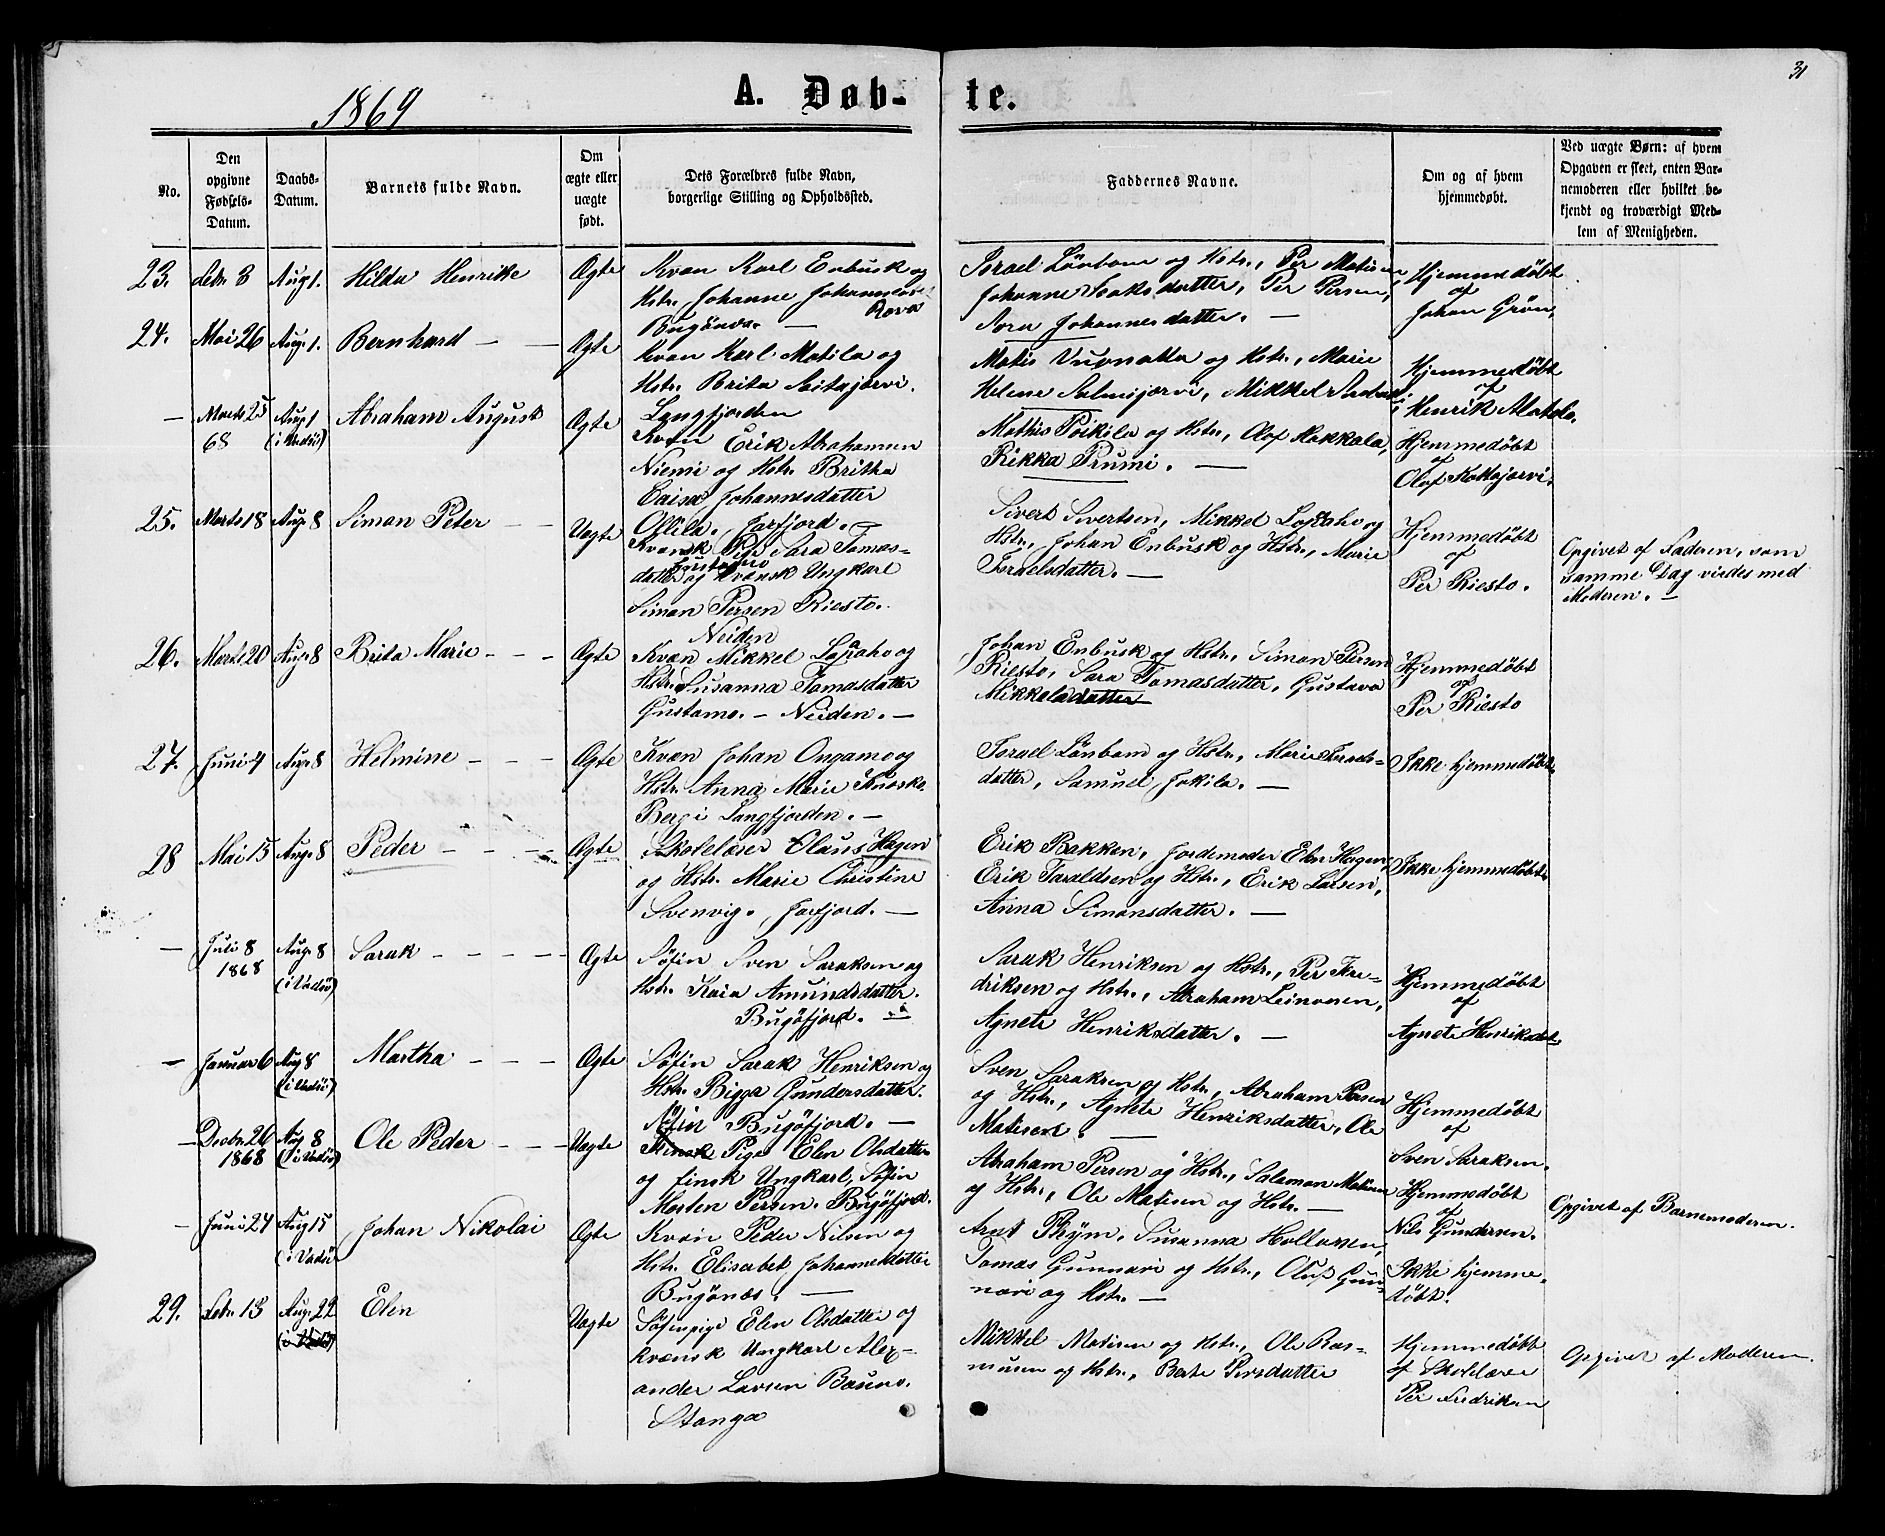 31
1869
A. Døb-
te.
No.
Den
opgivne
Fødsels-
Datum.
Daabs-
Datum.
Barnets fulde Navn.
Om
ægte eller
uægte
født.
Dets Forældres fulde Navn,
borgerlige Stilling og Opholdssted.
Faddernes Navne.
Om og af hvem
hjemmedøbt.
Ved uægte Børn: af hvem
Opgaven er skeet, enten Bar-
nemoderen eller hvilket be-
kjendt og troværdigt Med-
lem af Menigheden.
23. Febr. 3 Aug 1. Hilda Henrikke Ægte
Kvæn Karl Enbusk og
Hstr. Johanne Johannesdtr
Rova
Bugönæs. —
Israel Lönbom og Hstr., Per Matisen,
Johanne Isaksdatter, Per Persen,
Sora Johannesdatter. —
Hjemmedöbt
af
Johan Grön.
24. Mai 26 Aug. 1. Bernhard — — Ægte
Kvæn Karl Matila og
Hstr. Brita Saitajærvi.
Langfjorden
Matis Vuonatta og Hstr., Marie
Helene Salmijærvi, Mikkel
Hjemmedöbt
af
Henrik Matala.
— Marts 25 Aug 1 Abraham August Ægte
68 (i Vadsö)
Kvæn Erik Abrahamsen
Niemi og Hstr. Britha
Caisa Johannesdatter
Ollila. Jarfjord. —
Mathis Poikila og Hstr., Olof Kokkala,
Rikka Prumi. —
Hjemmedöbt
af
Olof Kokkojærvi.
25. Marts 18 Aug. 8 Simon Peter — — Uægte
Kvænsk Pige Sara Tomas-
Gustamo
datter og kvænsk Ungkarl
Simon Persen Riesto.
Neiden
Sivert Sivertsen, Mikkel Lossaho og
Hstr., Johan Enbusk og Hstr., Marie
Israelsdatter. —
Hjemmedöbt
af
Per Riesto.
Opgivet af Faderen, som
samme Dag viedes med
Moderen. —
26. Marts 20 Aug. 8 Brita Marie — — — Ægte
Kvæn Mikkel Lossaho og
Hstr. Susanna Tomasdatter
Gustamo. — Neiden. —
Johan Enbusk og Hstr., Simon Persen
Riesto, Sara Tomasdatter, Gustava
Mikkelsdatter
Hjemmedöbt
af
Per Riesto
27. Juni 4 Aug. 8 Helmine — — — Ægte
Kvæn Johan Ongamo og
Hstr. Anna Marie Kuosko.
Berg i Langfjorden. —
Israel Lönbom og Hstr., Marie Israels-
datter, Samuel Jokila. —
Ikke hjemmedöbt.
28 Mai 15 Aug. 8 Peder — — — Ægte
Skolelærer Olaus Hagen
og Hstr. Marie Christine
Svenvig. Jarfjord. —
Erik Bakken, Jordemoder Elen Hagen,
Erik Taraldsen og Hstr., Erik Larsen,
Anna Simonsdatter. —
Ikke hjemmedöbt.
— Juli 8 Aug. 8 Sarak — — — — Ægte
1868 (i Vadsö)
Söfin Sven Saraksen og
Hstr. Kaia Amundsdatter.
Bugöfjord. —
Sarak Henriksen og Hstr., Per Fre-
driksen og Hstr., Abraham Leinonen,
Agnete Henriksdatter. —
Hjemmedöbt
af
Agnete Henriksdtr.
— Januar 6 Aug 8 Martha — — — Ægte
(i Vadsö)
Söfin Sarak Henriksen og
Hstr. Bigga Gundersdatter.
Bugöfjord. —
Sven Saraksen og Hstr., Abraham Persen
og Hstr., Agnete Henriksdatter, Ole
Matisen. —
Hjemmedöbt
af
Sven Saraksen.
— Decbr. 26 Aug. 8 Ole Peder — — — Uægte
1868 (i Vadsö)
Söfin
Finsk Pige Elen Olsdatter
og finsk Ungkarl, Söfin
Morten Persen. Bugöfjord.
Abraham Persen og Hstr., Salamon Matisen
og Hstr., Ole Matisen og Hstr. —
Hjemmedöbt
af
Nils Gundersen.
Opgivet af Barnemoderen.
— Juni 24 Aug 15 Johan Nikolai Ægte
(i Vadsö)
Kvæn Peder Nilsen og
Hstr. Elisabet Johannesdatter
Bugönæs. —
Arnt Thym, Susanna Hollasen,
Tomas Gunnari og Hstr., Oluf Gun-
nari og Hstr. —
Ikke hjemme-
döbt.
29. Febr. 13 Aug. 22 Elen Uægte
(i Vadsö)
Söfinpige Elen Olsdatter og
kvænsk Ungkarl Alex-
ander Larsen Bauna.
Stanga
Mikkel Matisen og Hstr., Ole Ras-
musen og Hstr., Berte Persdatter
Hjemmedöbt
af Skolelærer
Per Fredriksen
Opgivet af Moderen.